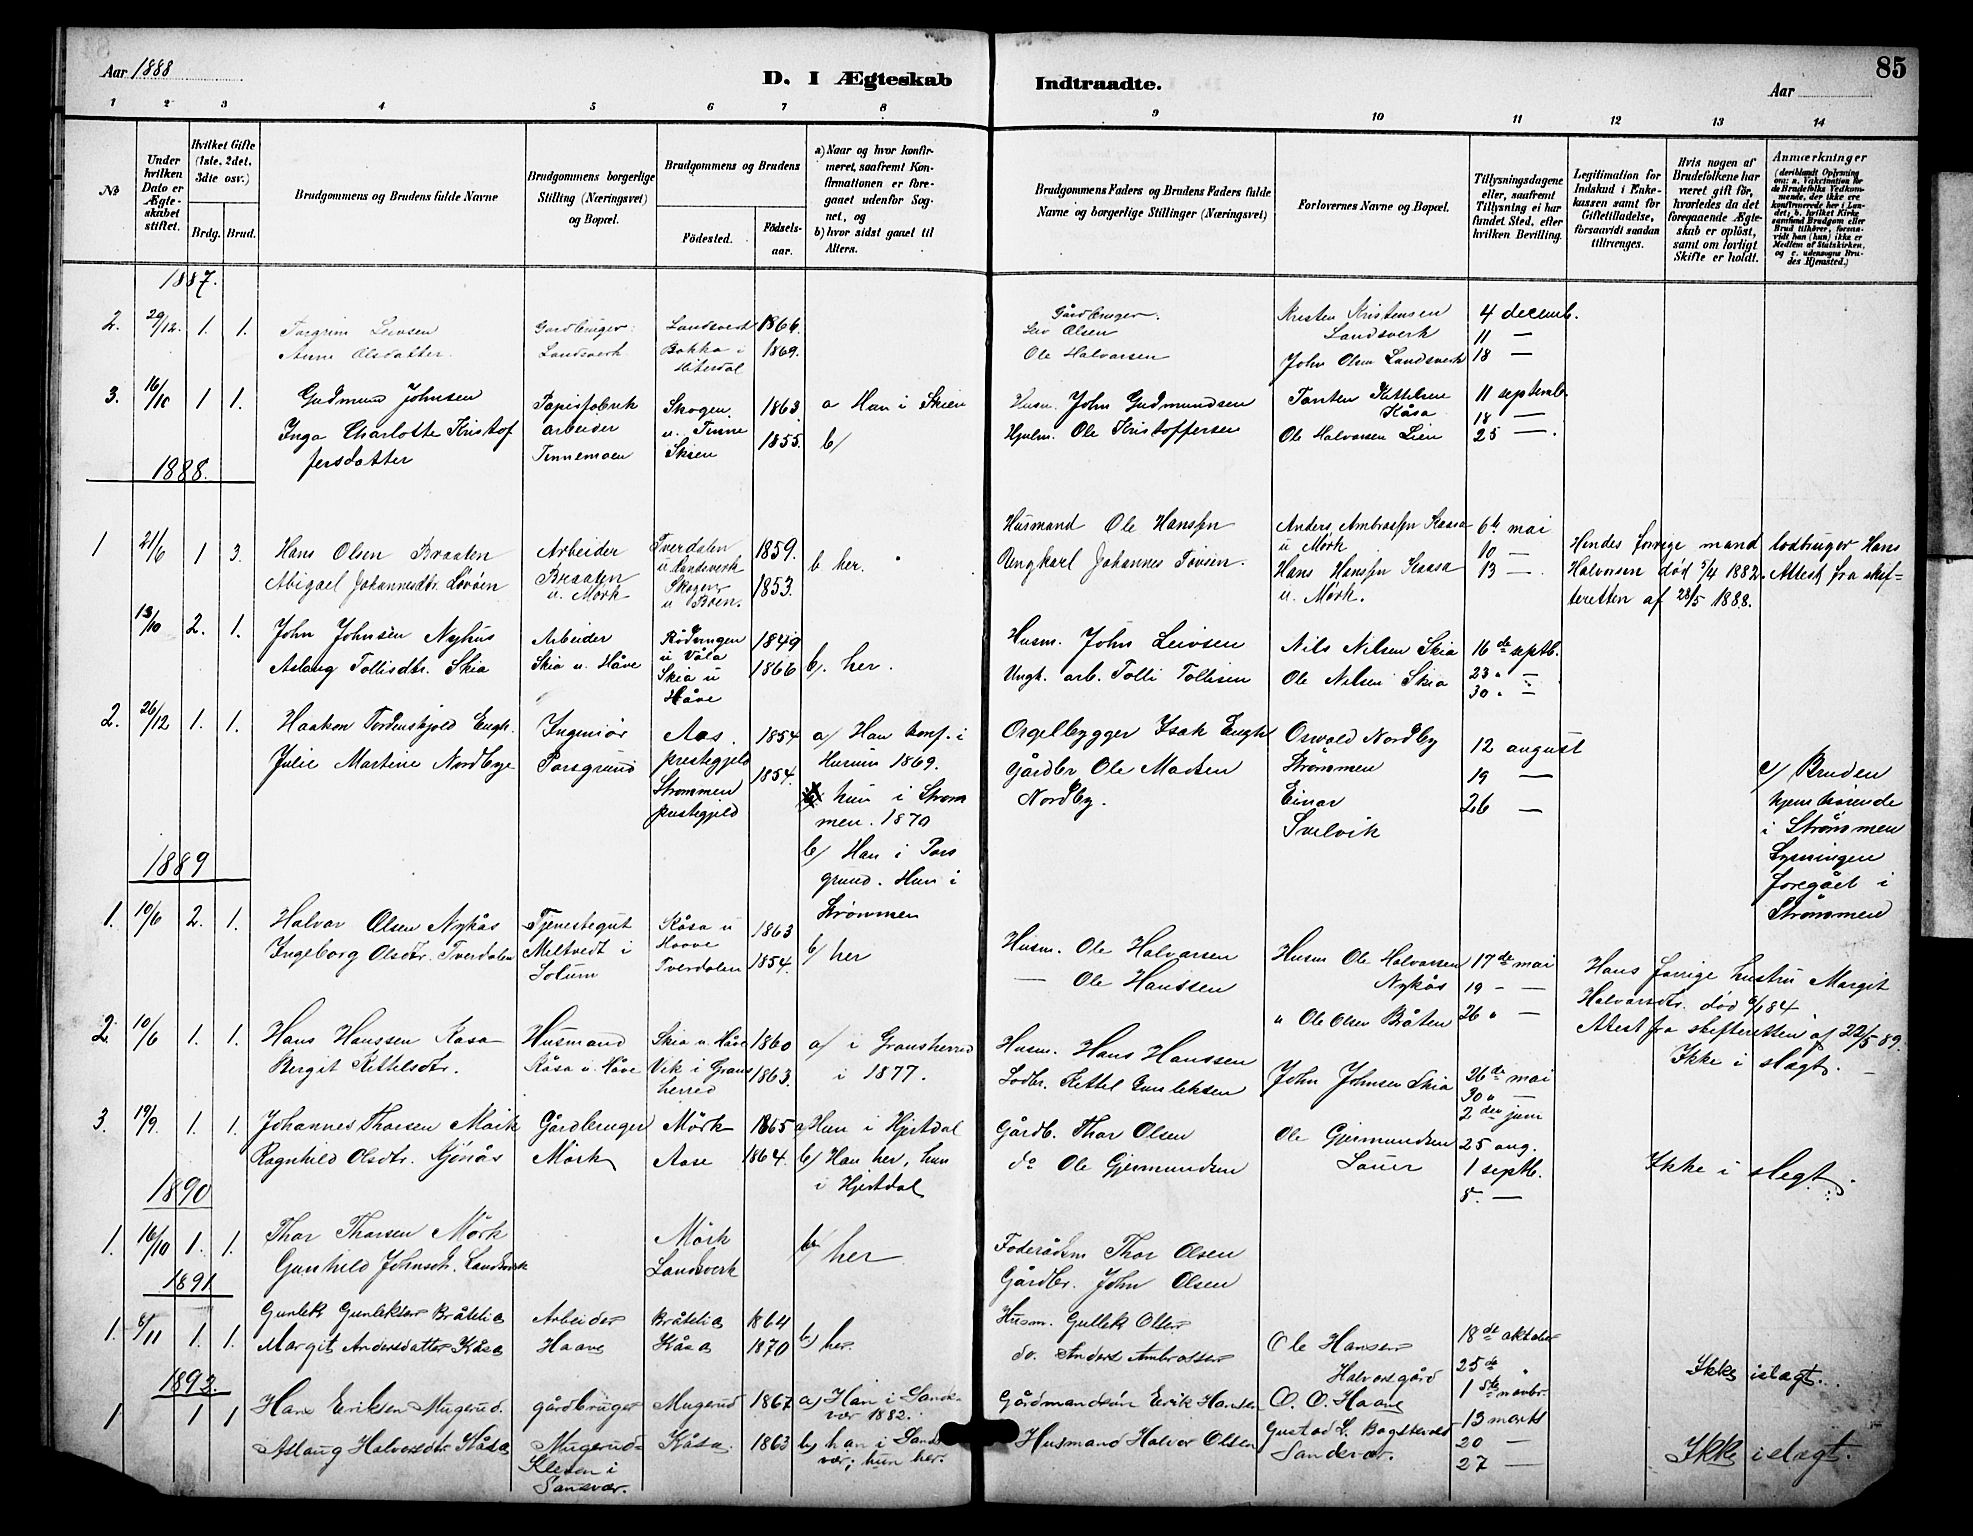 Aar 1888
D. I Ægteskab Indtraadte.
Aar
85
1 2 3 4 5 6 7 8 9 10 11 12 13 14
№
Under hvilken Dato er Ægteskabet stiftet.
Hvilket Gifte (1ste, 2det, 3die osv.)
Brdg. Brud.
Brudgommens og Brudens fulde Navne
Brudgommens borgerlige Stilling (Næringsvei) og Bopæl.
Brudgommens og Brudens
Fødested. Fødselsaar.
a) Naar og hvor konfirmeret, saafremt Konfirmationen er foregaaet udenfor Sognet, og
b) hvor sidst gaaet til Alters.
Brudgommens Faders og Brudens Faders fulde Navne og borgerlige Stillinger (Næringsvei)
Forlovernes Navne og Bopæl.
Tillysningsdagene eller, saafremt Tillysning ei har fundet Sted, efter hvilken Bevilling.
Legitimation for Indskud i Enkekassen samt for Giftetilladelse, forsaavidt saadan tiltrænges.
Hvis nogen af Brudefolkene har været gift før, hvorledes da det foregaaende Ægteskab er opløst, samt om lovligt Skifte er holdt.
Anmærkninger (deriblandt Oplysning om: a. Vakcination for de Brudefolks Vedkommende, der ikke ere konfirmerede her i Landet; b. hvilket Kirkesamfund Brudgom eller Brud tilhører, forsaavidt han (hun) ikke er Medlem af Statskirken, og c. udensogns Brudes Hjemsted.)
1887.
2. 29/12. 1. 1. Torgrim Leivsen Gardbruger Landsverk 1866 Gårdbruger. Kristen Kristensen 4 decemb.
Leiv Olsen Landsverk 11 —
Anne Olsdatter. Landsverk Bakka i Hiterdal 1869. Ole Halvorsen John Olsen Landsverk 18 —
3. 16/10 1 1. Gudmund Johnsen Papirfabrik arbeider Skogen u. Tinne 1863 a Han i Skien Husm. John Gudmundsen Kittilsen Kåsa 11 septemb.
18 —
Inga Charlotte Kristoffersdatter Tinnemoen Skien 1855. b/ Hjulm. Ole Kristoffersen Ole Halvorsen Lien 25 —.
1888.
1 21/6 1 3. Hans Olsen Braaten Arbeider Tverdalen u. Landsverk 1859. b her. Husmand Ole Hanssen Anders Ambrossen Kaasa u. Mørk 6te mai
10 — Hendes forrige mand lodbruger Hans
Abigael Johannesdtr. Løvåen Braaten u. Mørk Skogen u Bøen. 1853. Ungkarl Johannes Tovsen. Hans Hanssen Kaasa u. Mørk. 13 —. Halvorsen død 5/4 1882. Attest fra skifteretten af 28/5 1888.
13/10 2. 1. John Johnsen Nyhus Arbeider Rødningen u Våla 1849 Husm. John Leivsen Nils Nilsen Skia 16de septb.
Aslaug Tollisdtr. Skia Skia u. Håve Skia u Håve 1866 b). her. Ungk. arb. Tolli Tollisen Ole Nilsen Skia 23 " —
30 " —
2. 26/12 1. 1. Haakon Tordenskjold Engh. Ingeniør Aas prestegjeld 1854 a) Han konf. i Hurum 1869. Orgelbygger Isak Engh Oswald Nordby Strømmen 12 august
Julie Martine Nordbye Porsgrund Strømmen prestegjeld 1854. hun i Strømmen. 1870 Gårdbr Ole Madsen Nordby. Einar Svelvik 19 —
26 —
b) Han i Porsgrund. Hun i Strømmen
c) Bruden hjemhørende i Strømmen Lysningen foregået i Strømmen
1889
1. 10/6 2. 1. Halvor Olsen Nykås Tjenestegut Kåsa u Haave 1863 Husm. Ole Halvorsen Husm Ole Halvorsen Nykås 17de mai
19 - — Hans forrige hustru Margit
Ingeborg Olsdtr. Tverdalen Meltvedt i Solum Tverdalen 1854. b) her — Ole Hanssen " Ole Olsen Bråten 26 " — Halvorsdtr. død 84
Attest fra skifteretten af 22/5 89.
2. 10/6 1. 1. Hans Hanssen Kasa Husmand Skia u. Håve 1860 a) i Gransherred i 1877. Husm. Hans Hanssen Ikke i slægt.
Bergit Kettelsdtr. Kåsa u. Håve Vik i Gransherred 1863. Lodbr. Kettel Gunleksen John Johnsen Skia 26de mai
30 " —
2den juni
3. 19/9. 1. 1. Johannes Thorsen Mørk Gårdbruger Mørk 1865 a Hun i Hjertdal Gårdb. Thor Olsen Ole Gjermundsen Sauer 25 aug.
Ragnhild Olsdtr. Mørk Aase 1864. b) Han her, hun i Hjertdal do Ole Gjermundsen 1 septb. Ikke i slegt.
8. —
1890
1. 16/10 1. 1. Thor Thorsen Mørk Mørk b/ her Føderådsm Thor Olsen
Gunhild Johnsdt. Landsverk Landsverk Gårdbr. John Olsen
1891
1. 8/11 1. 1. Gunlek Gunleksen Bråtelia Arbeider Bråtelia 1864 Husm. Gullek Olsen
Margit Andersdatter Kåsa Haave Kåsa 1870 b) her. do. Anders Ambrossen Ole Hansen Halvorsgård 18de oktober
25de "
1ste novbr. Ikke i slægt.
1893.
1. 1 1 Hans Eriksen Mugerud. gårdbruger Mugerud 1867 a) Han i Sandsvær 1882. Gårdmandssøn Erik Hansen O. O. Haave 13 marts
Aslaug Halvorsdtr Kåsa Mugerud- i Sansvær. Kåsa. 1863 b) han i Sandsvær; hun her. Husmand Halvor Olsen Gustad L. Sandsvær. 20 —
27 — Ikke i slægt.